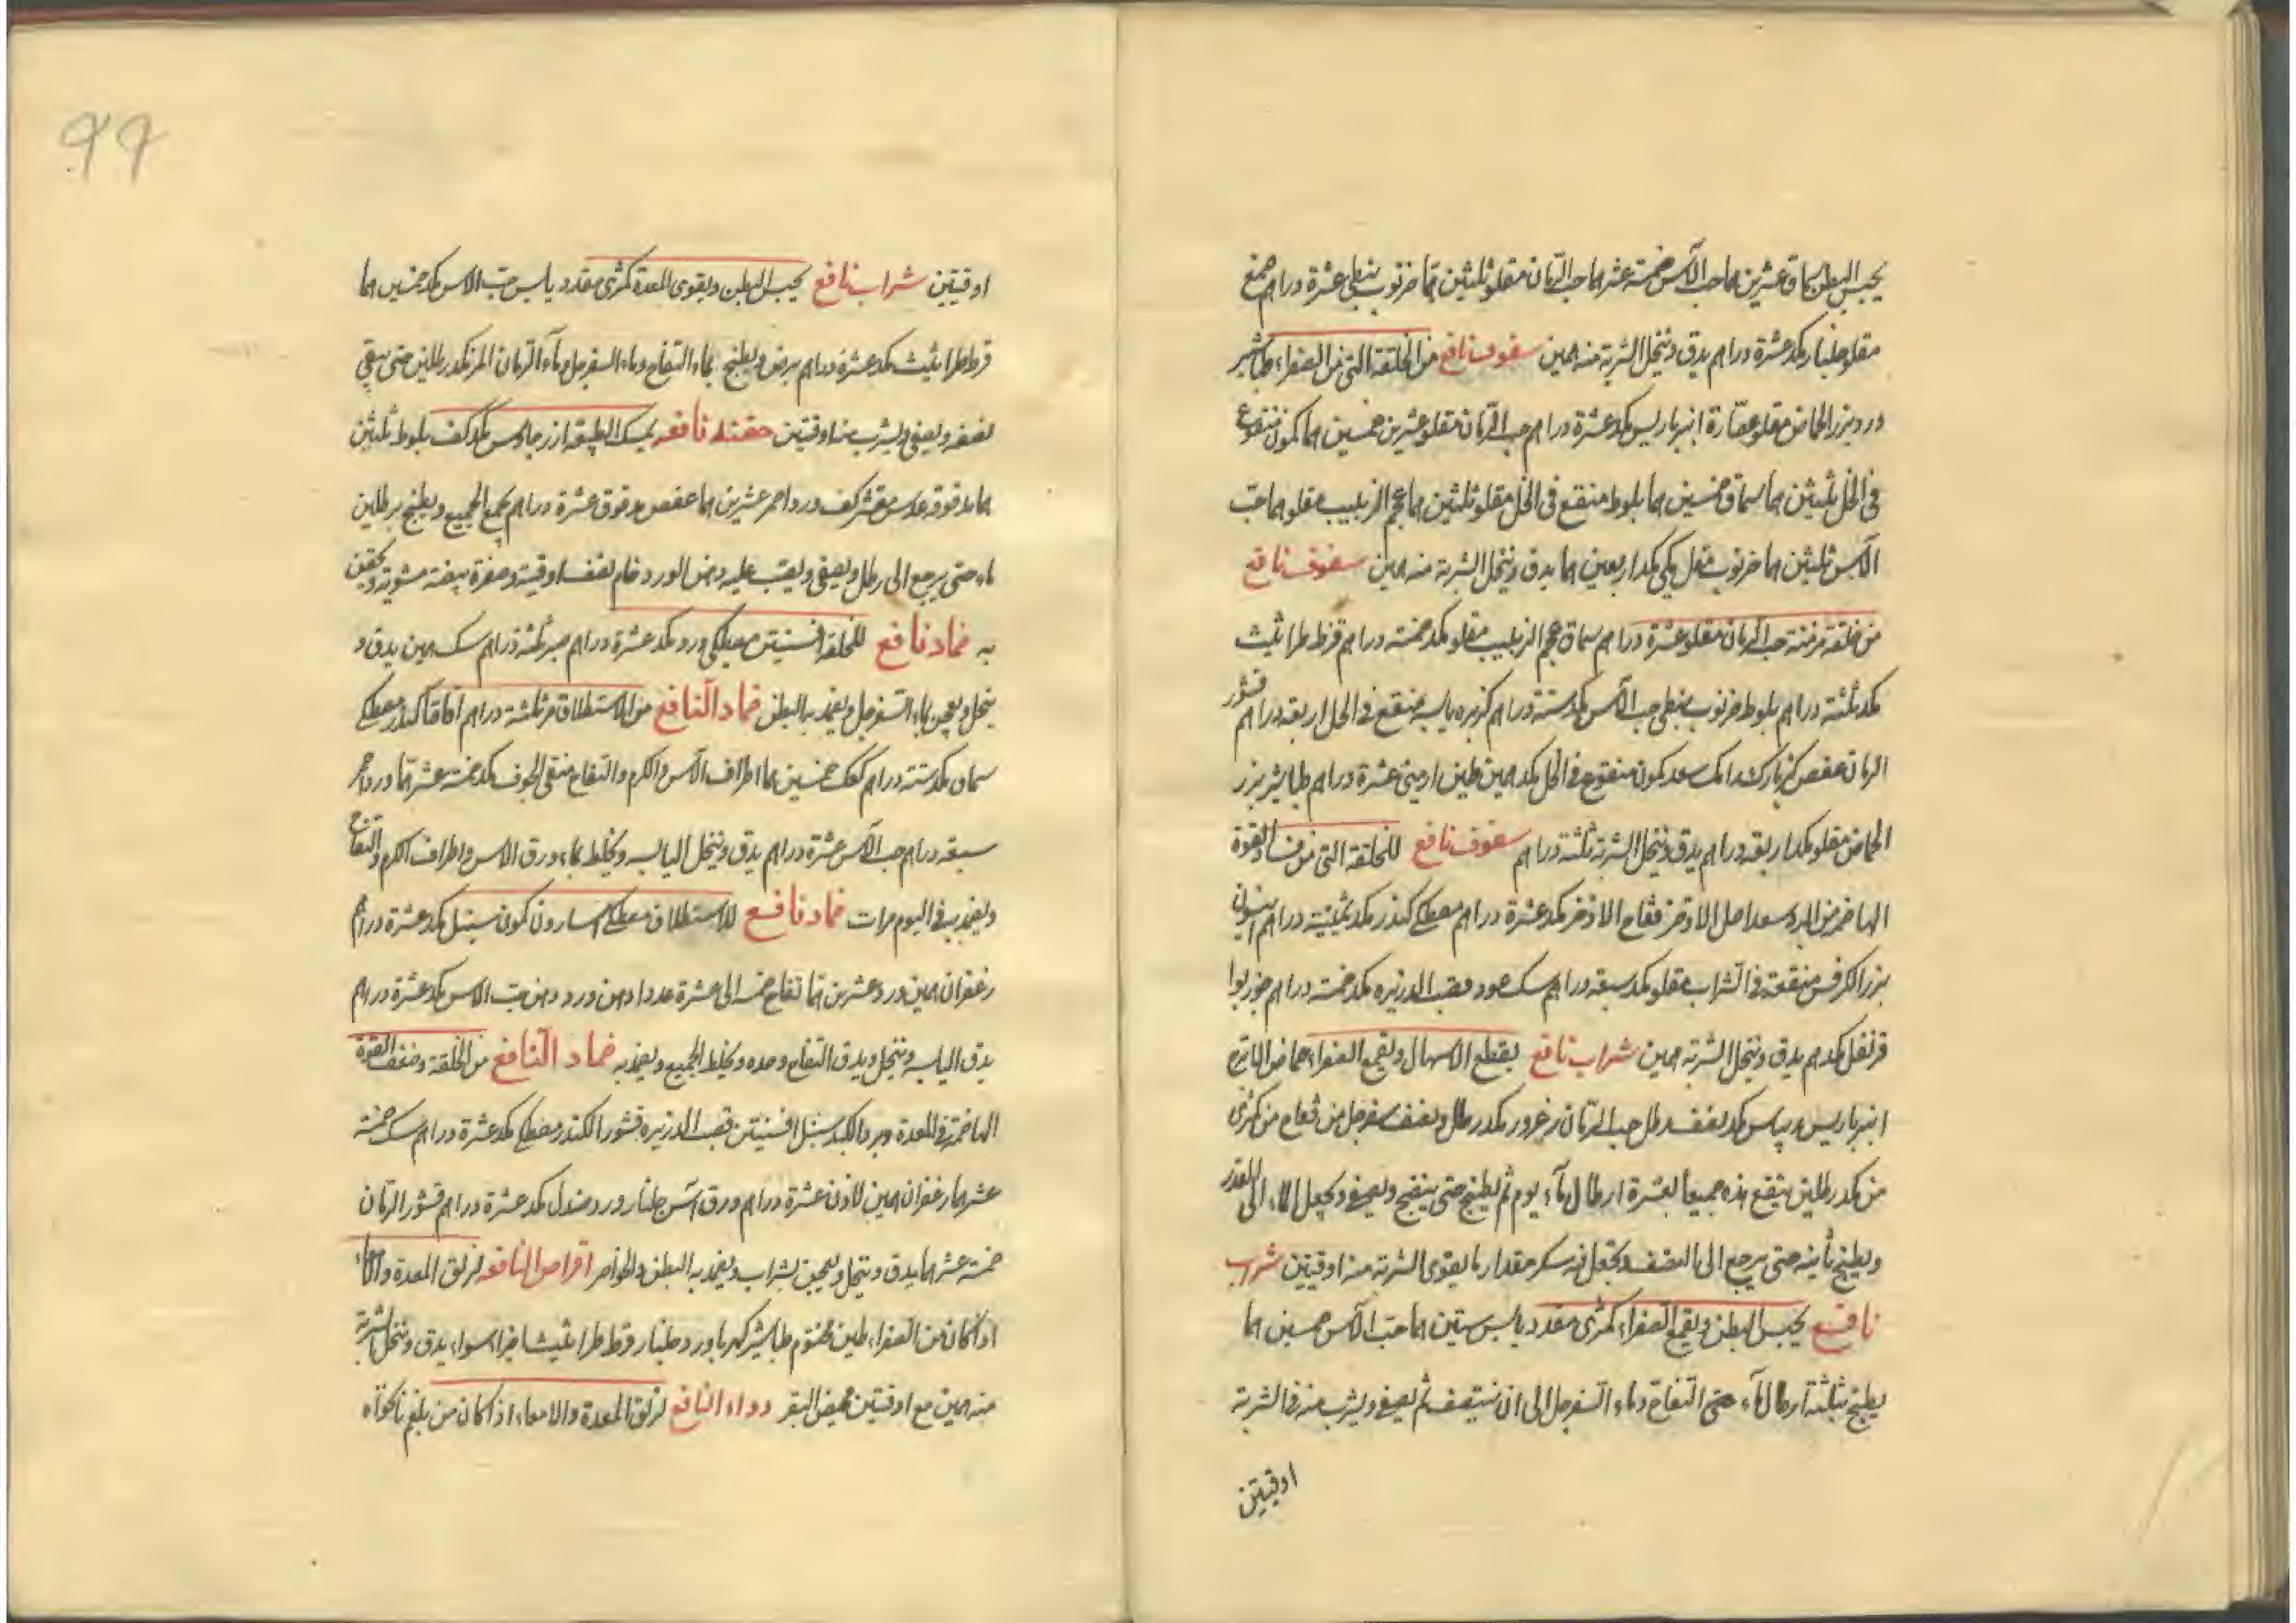 يحبس البطن سماق عشرين هما حب الآس خمسة عشر هما حب الرمان مقلو ثلثين هما خرنوب نبطي عشرة دراهم صمغ
مقلو جلنار مكد عشرة دراهم يدق وينخل الشربة منه همين سفوف نافع من الخلقة التي من الصفراء طباشير
ورد بزر الحماض مقلو عصارة انبرباريس مكد عشرة دراهم حب الرمان مقلو عشرين خمسين هما كمون منقوع
في الخل ثلثين هما سماق خمسين هما بلوط منقع في الخل مقلو ثلثين هما عجم الزبيب مقلو هما حب
الآس ثلثين هما خرنوب مقل مكي مكد اربعين هما يدق وينخل الشربة منه همين سفوف نافع
من خلقة مزمنة حب الرمان مقلو عشرة دراهم سماق عجم الزبيب مقلو مكد خمسة دراهم قرط طراثيث
مكد ثلثة دراهم بلوط خرنوب نبطي حب الآس مكد ستة دراهم كزبره يابسه منقع في الخل اربعه دراهم قشور
الرمان عفص كزبازك رامك سعد كمون منقوع في الخل مكد همين طين ارمني عشرة دراهم طباشير بزر
الحماض مقلو مكد اربعه دراهم يدق وينخل الشربة ثلثة دراهم سفوف نافع للخلقة التي من فساد القوة
الهاضمه من البرد سعد اصل الاذخر فقاح الاذخر مكد عشرة دراهم مصطكي كندر مكد ثمنية دراهم انيسون
بزر الكرفس منقعة في الشراب مقلو مكد سبعه دراهم سك عود قصب الذريره مكد خمسة دراهم جوزبوا
قرنفل مكد هم يدق وينخل الشربة همين شراب نافع يقطع الاسهال ويقمع الصفراء حماض الاترج
انبرباريس ريباس مكد نصف رطل حب الرمان زعرور مكد رطل ونصف سفرجل من تفاح من كمثرى
من مكد رطلين ينقع هذه جميعا بعشرة ارطال ماء يوم ثم يطبخ حتى ينضج ويصفى ويجعل الماء الى القدر
ويطبخ ثانيه حتى يرجع الى النصف ويجعل فيه سكر مقدار ما يقوى الشربة منه اوقيتين شراب
نافع يحبس البطن ويقمع الصفراء كمثرى مقدد يابس ستين هما حب الآس خمسين هما
يطبخ بثلثة ارطال ماء حتى التفاح وماء السفرجل الى ان ينتصف ثم يصفى ويشرب منه الشربة
اوقيتين
اوقيتين شراب نافع يحبس البطن ويقوى المعدة كمثرى مقدد يابس حب الآس مكد خمسين هما
قرط طراثيث مكد عشرة دراهم يرض ويطبخ بماء التفاح وماء السفرجل وماء الرمان المز مكد رطلين حتى يبقى
نصفه ويصفى ويشرب منه اوقيتين حقنة نافعه يمسك الطبيعة ارز جاورس مكد كف بلوط ثلثين
هما مدقوقه عدس مقشر كف ورد احمر عشرين هما عفص مدقوق عشرة دراهم يجمع الجميع ويطبخ برطلين
ماء حتى يرجع الى رطل ويصفى ويصب عليه دهن الورد خام نصف اوقية وصفرة بيضة مشوية ويحقن
به ضماد نافع للخلقة افسنتين مصطكي ورد مكد عشرة دراهم صبر ثلثة دراهم سك همين يدق و
ينخل ويعجن بماء السفرجل ويضمد به البطن ضماد النافع من الاستطلاق مر ثلثة دراهم اقاقيا كندر مصطكي
سماق مكد ستة دراهم كعك خمسين هما اطراف الآس والكرم والتفاح منقى الجوف مكد خمسة عشر هما ورد احمر
سبعه دراهم حب الآس عشرة دراهم يدق وينخل اليابسه ويخلط بماء ورق الآس واطراف الكرم والتفاح
ويضمد به في اليوم مرات ضماد نافع للاستطلاق مصطكي اسارون كمون سنبل مكد عشرة دراهم
زعفران همين ورد عشرين هما تفاح خمسه الى عشرة عددا دهن ورد دهن حب الآس مكد عشرة دراهم
يدق اليابسه وينخل ويدق التفاح وحده ويخلط الجميع ويضمد به ضماد النافع من الخلقة وضعف القوة
الهاضمة في المعدة وبرد الكبد سنبل افسنتين قصب الذريره قشور الكندر مصطكي مكد عشرة دراهم سك خمسة
عشر هما زعفران همين لاذن عشرة دراهم ورق آس جلنار ورد صندل مكد عشرة دراهم قشور الرمان
خمسة عشر هما يدق وينخل ويعجن بشراب ويضمد به البطن والخواصر اقراص النافعه لزلق المعدة والامعاء
اذا كان من الصفراء طين مختوم طباشير كهربا ورد جلنار قرط طراثيث اجزاء سواء يدق وينخل الشربة
منه همين مع اوقيتين مخيض البقر دواء النافع لزلق المعدة والامعاء اذا كان من بلغم نانخواه